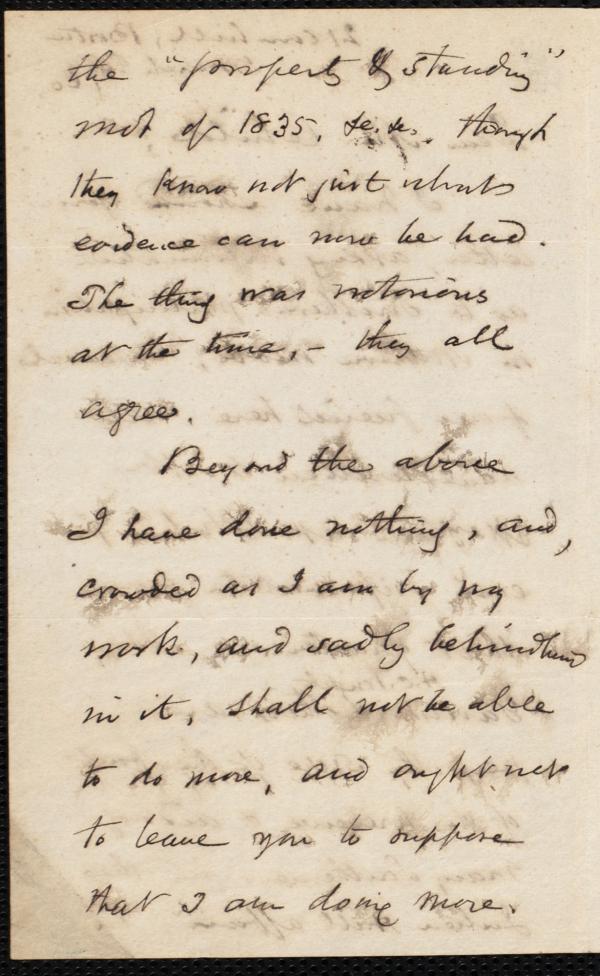 the "property & standing"
mob of 1835, &c. &c., though
they know not just what
evidence can now be had.
The thing was notorious
at the time, – they all
agree.
Beyond the above
I have done nothing, and,
crowded as I am by my
work, and sadly behindhand
in it, shall not be able
to do more, and ought not
to leave you to suppose
that I am doing more.